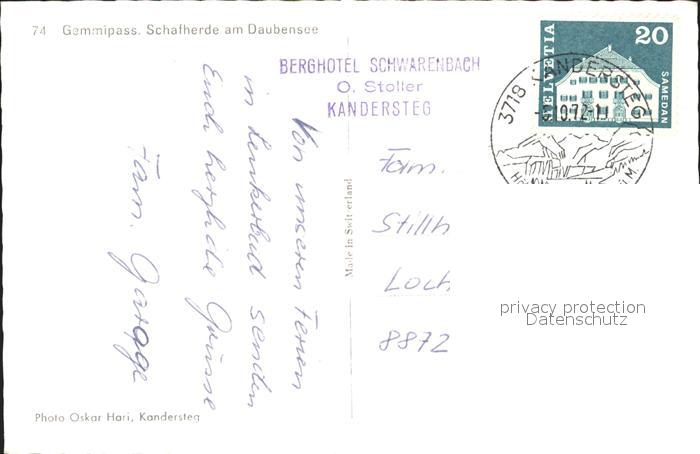 74 Gemmipass. Schafherde am Daubensee
BERGHOTEL SCHWARENBACH
O. Stoller
KANDERSTEG
HELVETIA
20
SAMEDAN
3718 KANDERSTEG
Von unseren Ferien
in Leukerbad senden
Euch herzliche Grüsse
Fam. Garage
Made in Switzerland
Fam.
Loch
8872
privacy protection
Datenschutz
Photo Oskar Hari, Kandersteg